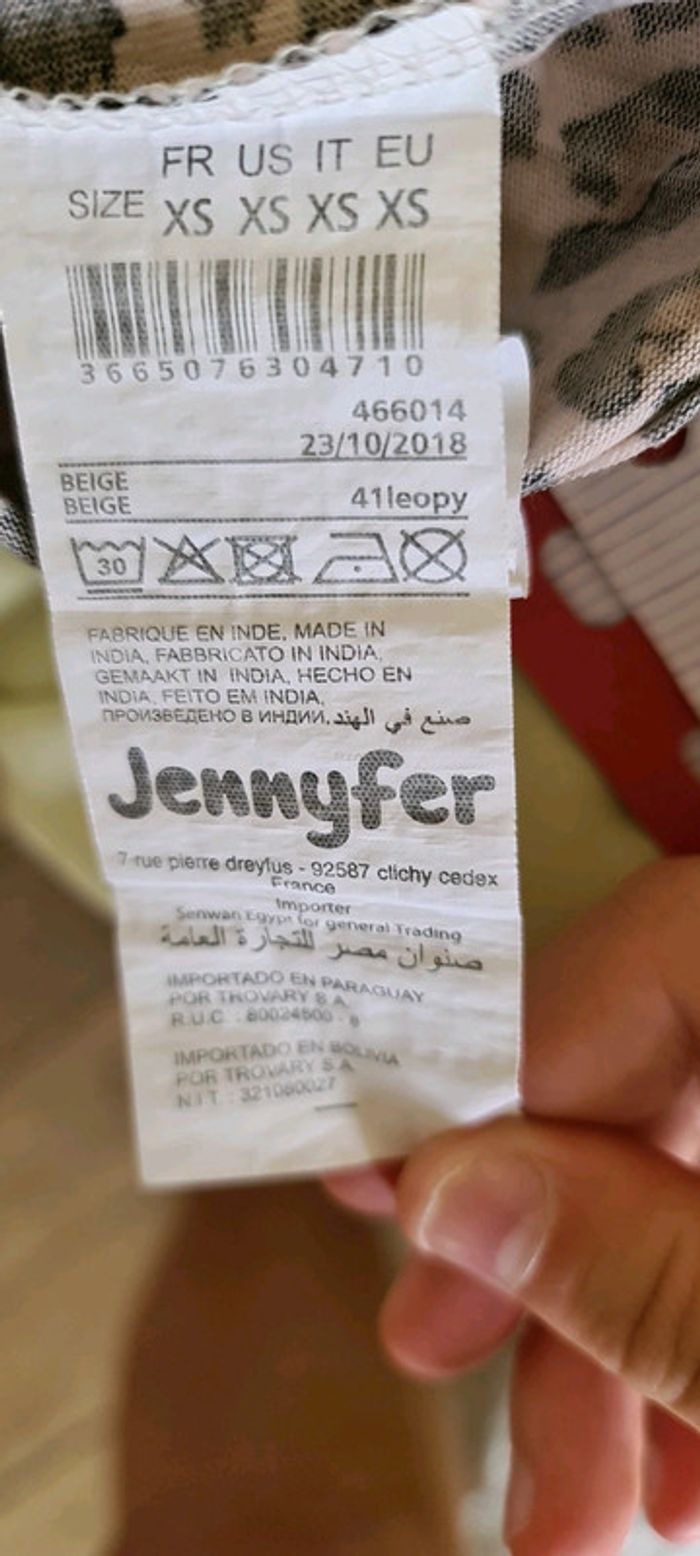 FR US IT EU
SIZE XS XS XS XS
3665076304710
466014
23/10/2018
BEIGE
BEIGE 41leopy
30
FABRIQUE EN INDE, MADE IN
INDIA, FABBRICATO IN INDIA,
GEMAAKT IN INDIA, HECHO EN
INDIA, FEITO EM INDIA,
ПРОИЗВЕДЕНО В ИНДИИ, صنع في الهند
Jennyfer
7 rue pierre dreyfus - 92587 clichy cedex
France
Importer
Senwan Egypt for general Trading
صنوان مصر للتجارة العامة
IMPORTADO EN PARAGUAY
POR TROVARY S A
R.U.C : 80024500 - 8
IMPORTADO EN BOLIVIA
POR TROVARY S A
N I T : 321080027